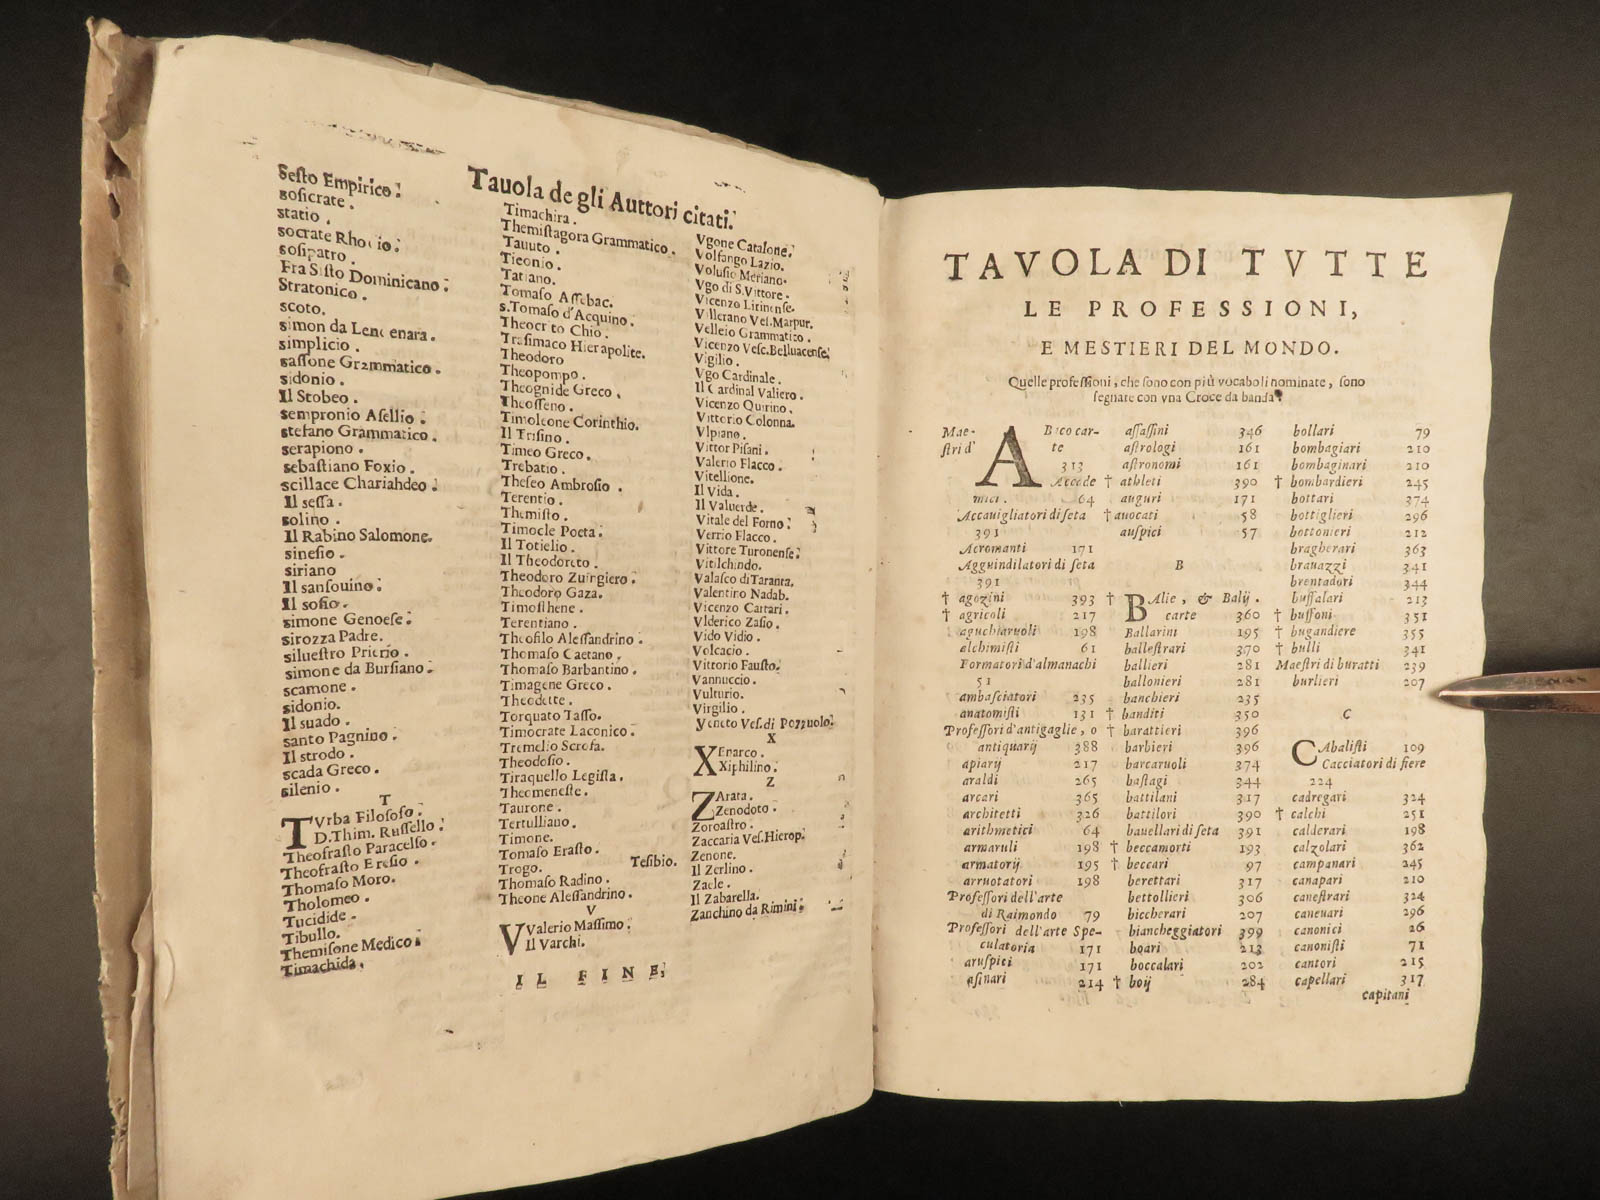 Tauola de gli Auttori citati.
Sesto Empirico.
sosicrate.
statio.
socrate Rhodio.
sosipatro.
Fra Sisto Dominicano.
Stratonico.
scoto.
simon da Lendenara.
simplicio.
sassone Grammatico.
sidonio.
Il Stobeo.
sempronio Asellio.
stefano Grammatico.
serapiono.
sebastiano Foxio.
scillace Chariahdeo.
Il sessa.
solino.
Il Rabino Salomone.
sinesio.
siriano
Il sansouino.
Il sosio.
simone Genoese.
sirozza Padre.
siluestro Prierio.
simone da Bursiano.
scamone.
sidonio.
Il suado.
santo Pagnino.
Il strodo.
scada Greco.
silenio.
T
TVrba Filosofo.
D. Thim. Russello.
Theofrasto Paracelso.
Theofrasto Eresio.
Thomaso Moro.
Tholomeo.
Tucidide.
Tibullo.
Themisone Medico.
Timachida.
Timachira.
Themistagora Grammatico.
Tauuto.
Ticonio.
Tatiano.
Tomaso Assebac.
s. Tomaso d'Acquino.
Theocrito Chio.
Trasimaco Hierapolite.
Theodoro
Theopompo.
Theognide Greco.
Theosseno.
Timoleone Corinthio.
Il Trisino.
Timeo Greco.
Trebatio.
Theseo Ambrosio.
Terentio.
Themisto.
Timocle Poeta.
Il Totielio.
Il Theodoreto.
Theodoro Zuirgiero.
Theodoro Gaza.
Timosthene.
Terentiano.
Theofilo Alessandrino.
Thomaso Caetano.
Thomaso Barbantino.
Timagene Greco.
Theodette.
Torquato Tasso.
Timocrate Laconico.
Tremelio Scrofa.
Theodosio.
Tiraquello Legista.
Theomeneste.
Taurone.
Tertulliano.
Timone.
Tomaso Erasto.
Trogo. Tesibio.
Thomaso Radino.
Theone Alessandrino.
V
VValerio Massimo.
Il Varchi.
Vgone Catalone.
Volfango Lazio.
Volusio Meriano.
Vgo di S. Vittore.
Vicenzo Litinense.
Villerano Ves. Marpur.
Velleio Grammatico.
Vicenzo Vesc. Belluacense.
Vigilio.
Vgo Cardinale.
Il Cardinal Valiero.
Vicenzo Quirino.
Vittorio Colonna.
Vlpiano.
Vittor Pisani.
Valerio Flacco.
Vitellione.
Il Vida.
Il Valuerde.
Vitale del Forno.
Verrio Flacco.
Vittore Turonense.
Vitilchindo.
Valasco di Taranta.
Valentino Nadab.
Vicenzo Cartari.
Vlderico Zasio.
Vido Vidio.
Volcacio.
Vittorio Fausto.
Vannuccio.
Vulturio.
Virgilio.
Veneto Ves. di Pozzuolo.
X
XEnarco.
Xiphilino.
Z
ZArata.
Zenodoto.
Zoroastro.
Zaccaria Ves. Hierop.
Zenone.
Il Zerlino.
Zaele.
Il Zabarella.
Zanchino da Rimini.
IL FINE,
TAVOLA DI TVTTE
LE PROFESSIONI,
E MESTIERI DEL MONDO.
Quelle professioni, che sono con più vocaboli nominate, sono
segnate con vna Croce da banda.
Maestri d'ABaco carte 313
Accademici. 64
Accauigliatori di seta
391
Acromanti 171
Agguindilatori di seta
391
† agozini 393
† agricoli 217
aguchiaruoli 198
alchimisti 61
Formatori d'almanachi
51
ambasciatori 235
anatomisti 131
Professori d'antigaglie, o
antiquarij 388
apiarij 217
araldi 265
arcari 365
architetti 326
arithmetici 64
armaruli 198
armatorij 195
arruotatori 198
Professori dell'arte
di Raimondo 79
Professori dell'arte Spe-
culatoria 171
aruspici 171
asinari 214
assassini 346
astrologi 161
astronomi 161
† athleti 390
auguri 171
† auocati 58
auspici 57
B
† BAlie, & Balij.
carte 360
Ballarini 195
ballestrari 370
ballieri 281
ballonieri 281
banchieri 235
† banditi 350
† barattieri 396
barbieri 396
barcaruoli 374
bastagi 344
battilani 317
battilori 390
bauellari di seta 391
† beccamorti 193
† beccari 97
berettari 317
bettollieri 306
biccherari 207
biancheggiatori 399
boari 213
boccalari 202
† boij 284
bollari 79
bombagiari 210
bombaginari 210
† bombardieri 245
bottari 374
bottiglieri 296
bottonieri 212
bragherari 363
brauazzi 341
brentadori 344
buffalari 213
† buffoni 351
† bugandiere 355
† bulli 341
Maestri di buratti 239
burlieri 207
C
CAbalisti 109
Cacciatori di fiere
224
cadregari 324
† calchi 251
calderari 198
calzolari 362
campanari 245
canapari 210
canestrari 324
caneuari 296
canonici 26
canonisti 71
cantori 215
capellari 317
capitani